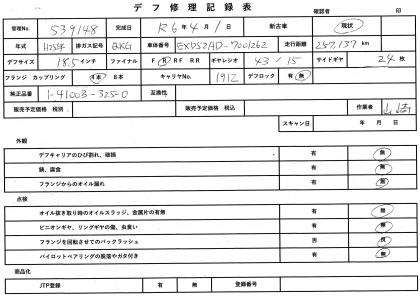 デフ修理記録表
確認者 印
管理No. S39148 完成日 R6年4月1日 新古車 現状
年式 H25年 排ガス記号 QKG 車体番号 EXD52AD-7001262 走行距離 257,137 km
デフサイズ 18.5インチ ファイナル F R RF RR ギヤレシオ 43/15 サイドギヤ 24枚
フランジ カップリング 4本 8本 キャリヤNo. 1912 デフロック 有 無
純正品番 1-41003-325-0 互換性
販売予定価格 税別 販売予定価格 税込 作業者
スキャン日 年 月 日
外観
デフキャリアのひび割れ、破損 有 無
錆、腐食 有 無
フランジからのオイル漏れ 有 無
点検
オイル抜き取り時のオイルスラッジ、金属片の有無 有 無
ピニオンギヤ、リングギヤの傷、虫食い 有 無
フランジを回転させてのバックラッシュ 否 良
パイロットベアリングの脱落やガタ付き 有 無
商品化
JTP登録 有 無 登録番号